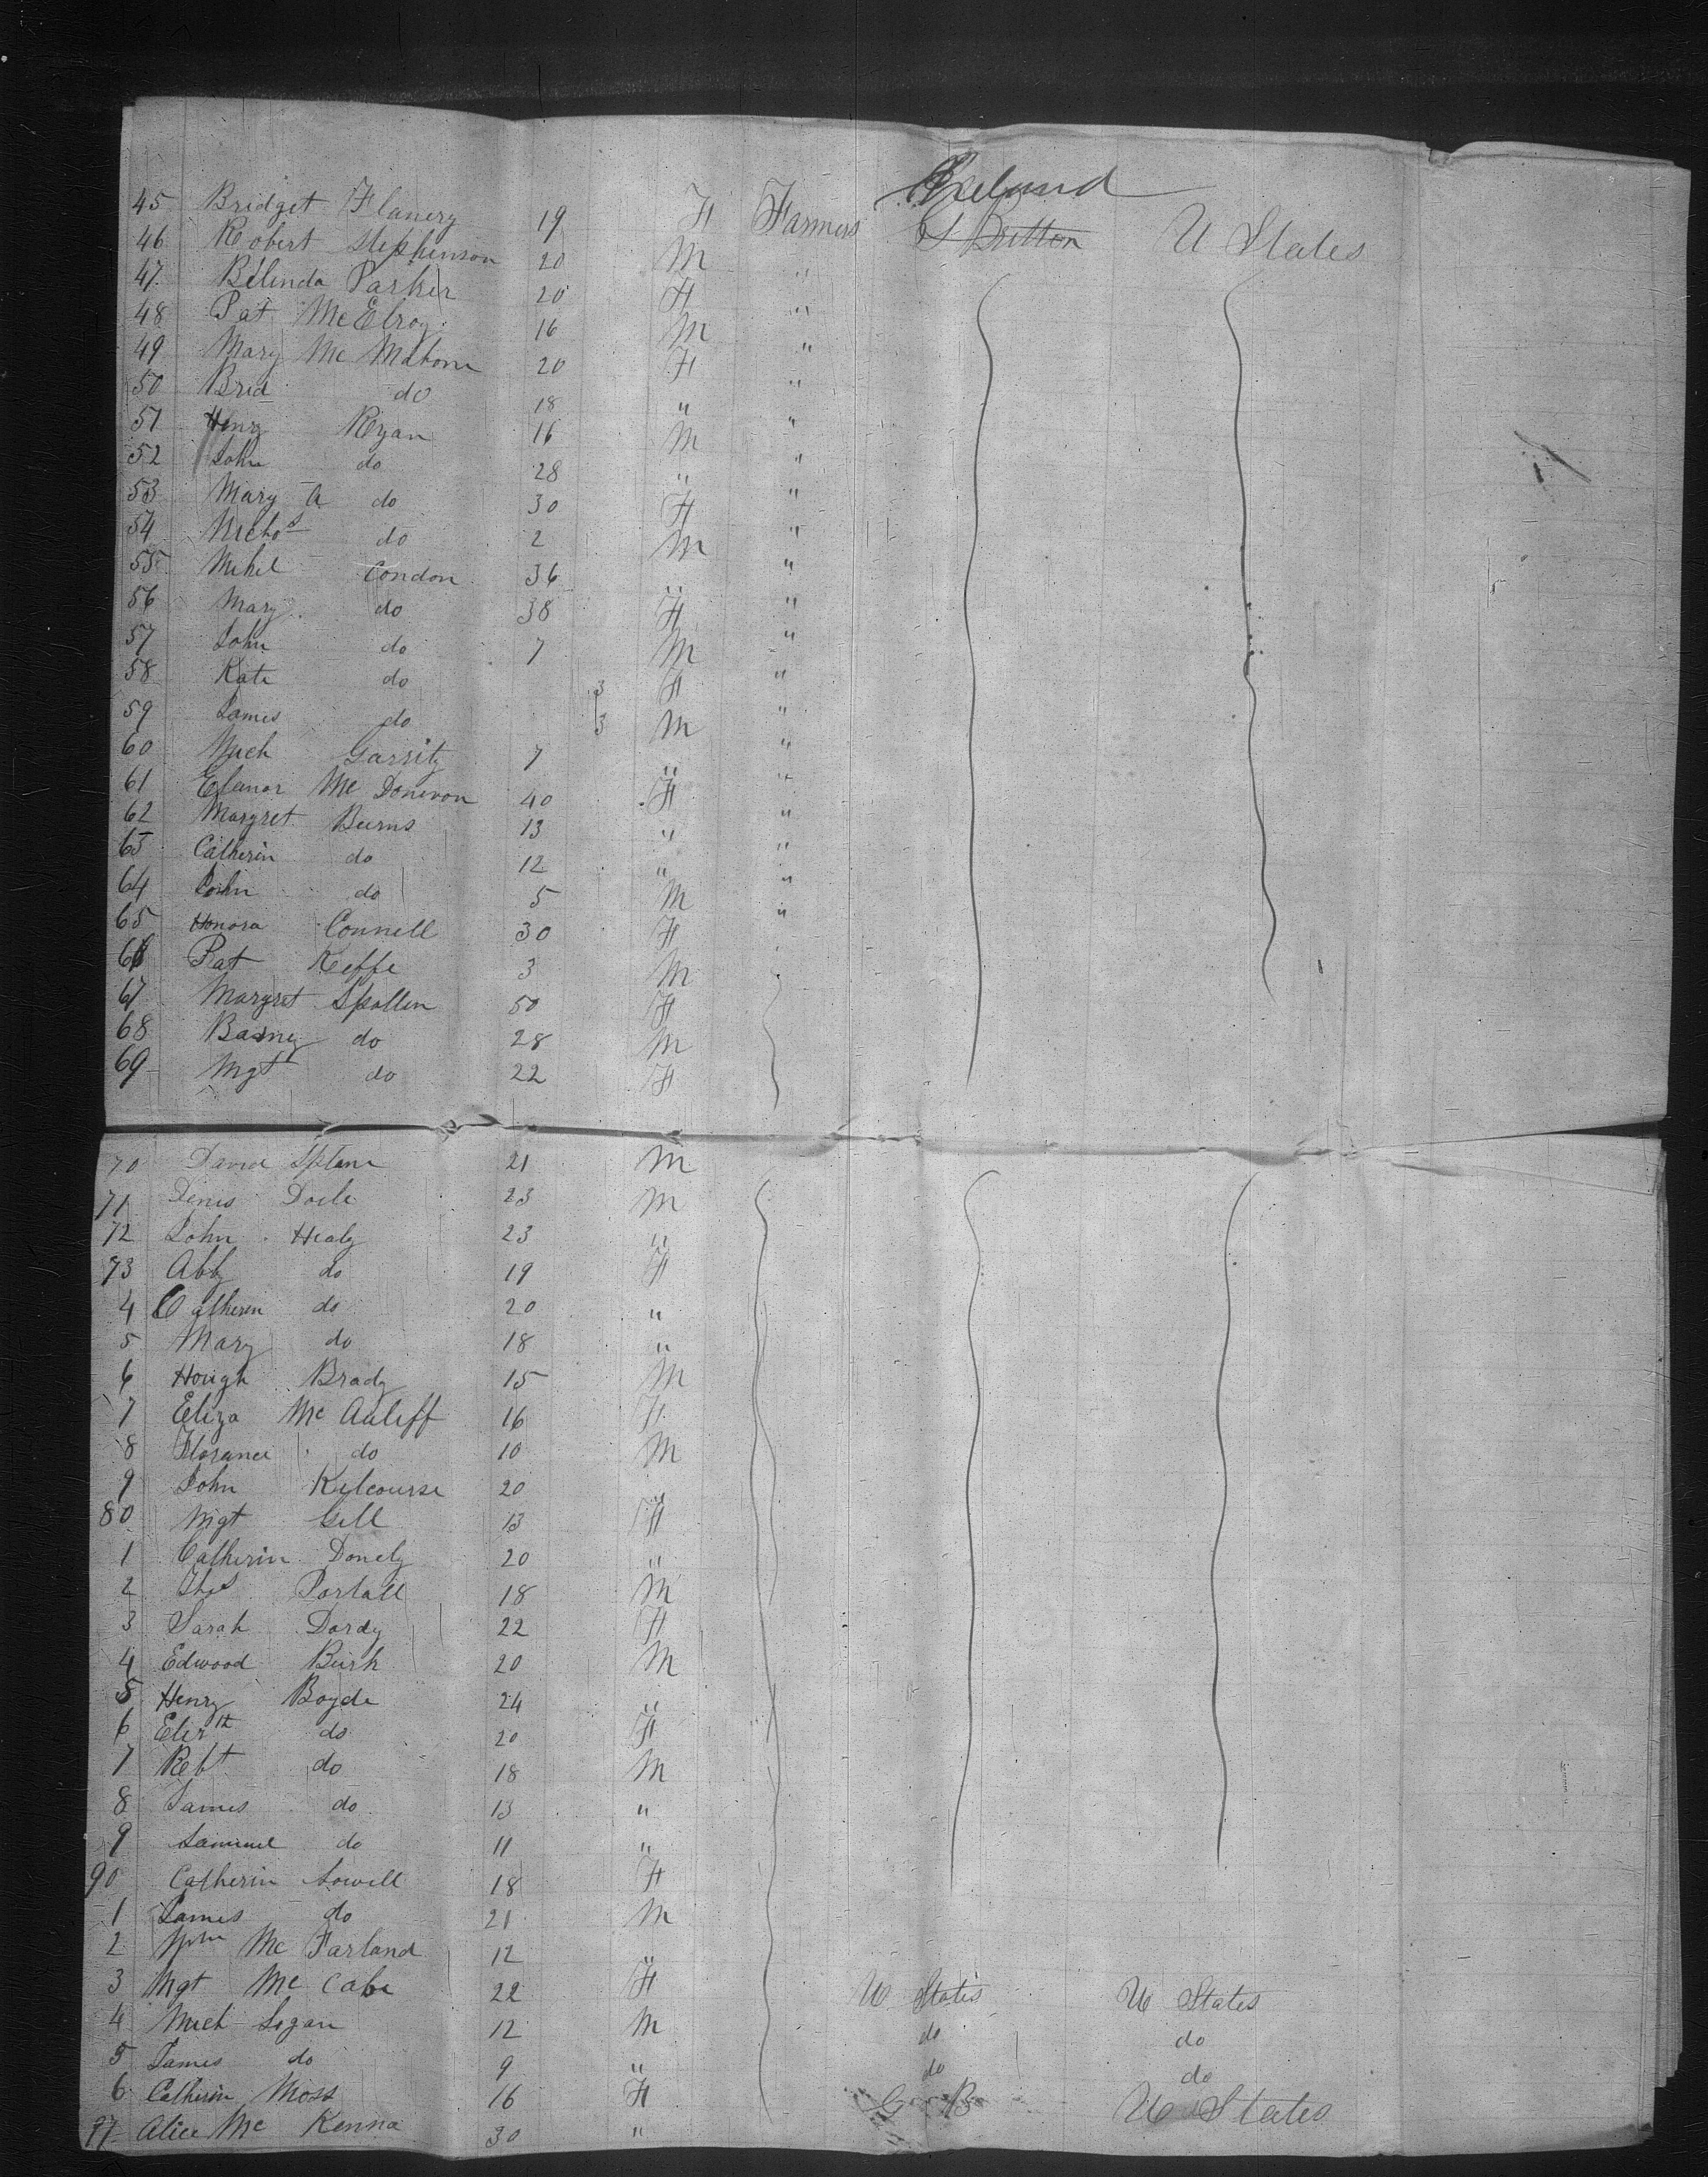 Ireland
45 Bridget Flanery 19 F Farmers Gt Britton U States
46 Robert Stephenson 20 M "
47 Belinda Parker 20 F "
48 Pat McElroy 16 M "
49 Mary Mc Mahon 20 F "
50 Brid do 18 " "
51 Henry Ryan 16 M "
52 John do 28 " "
53 Mary A do 30 F "
54 Nichos do 2 M "
55 Mihel Condon 36 " "
56 Mary do 38 F "
57 John do 7 M "
58 Kate do 3 F "
59 James do 3 M "
60 Mich Garrity 7 " "
61 Elanor Mc Donivon 40 F "
62 Margret Burns 13 " "
63 Catherin do 12 " "
64 John do 5 M "
65 Honora Connell 30 F
66 Pat Keffe 3 M
67 Margret Spollen 50 F
68 Barney do 28 M
69 Mgt do 22 F
70 David 21 M
71 Denis Doile 23 M
72 John Healy 23 "
73 Abby do 19 F
4 Catherin do 20 "
5 Mary do 18 "
6 Hough Brady 15 M
7 Eliza Mc Auliff 16 F
8 Florance do 10 M
9 John Kilcourse 20 "
80 Mgt Gill 13 F
1 Catherin Donely 20 "
2 Thos Portall 18 M
3 Sarah Dordy 22 F
4 Edwood Burk 20 M
5 Henry Boyde 24 "
6 Elizth do 20 F
7 Robt do 18 M
8 James do 13 "
9 Samuel do 11 "
90 Catherin Sowell 18 F
1 James do 21 M
2 Mc Farland 12 "
3 Mgt Mc Cabe 22 F U States U States
4 Mich Logan 12 M do do
5 James do 9 " do do
6 Catherin Moss 16 F G B U States
97 Alice Mc Kenna 30 "